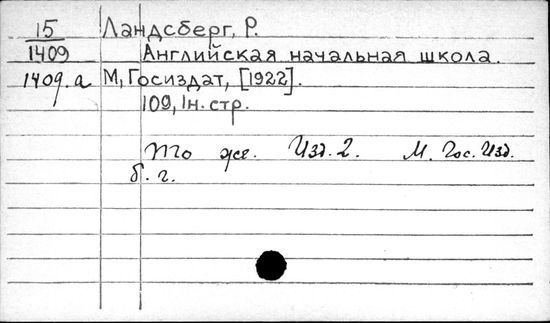 15 Ландсберг, Р.
1409 Английская начальная школа.
1409.а М, Госиздат, [1922].
109, 1н. стр.
То же. Изд. 2. М. Гос. Изд.
б. г.